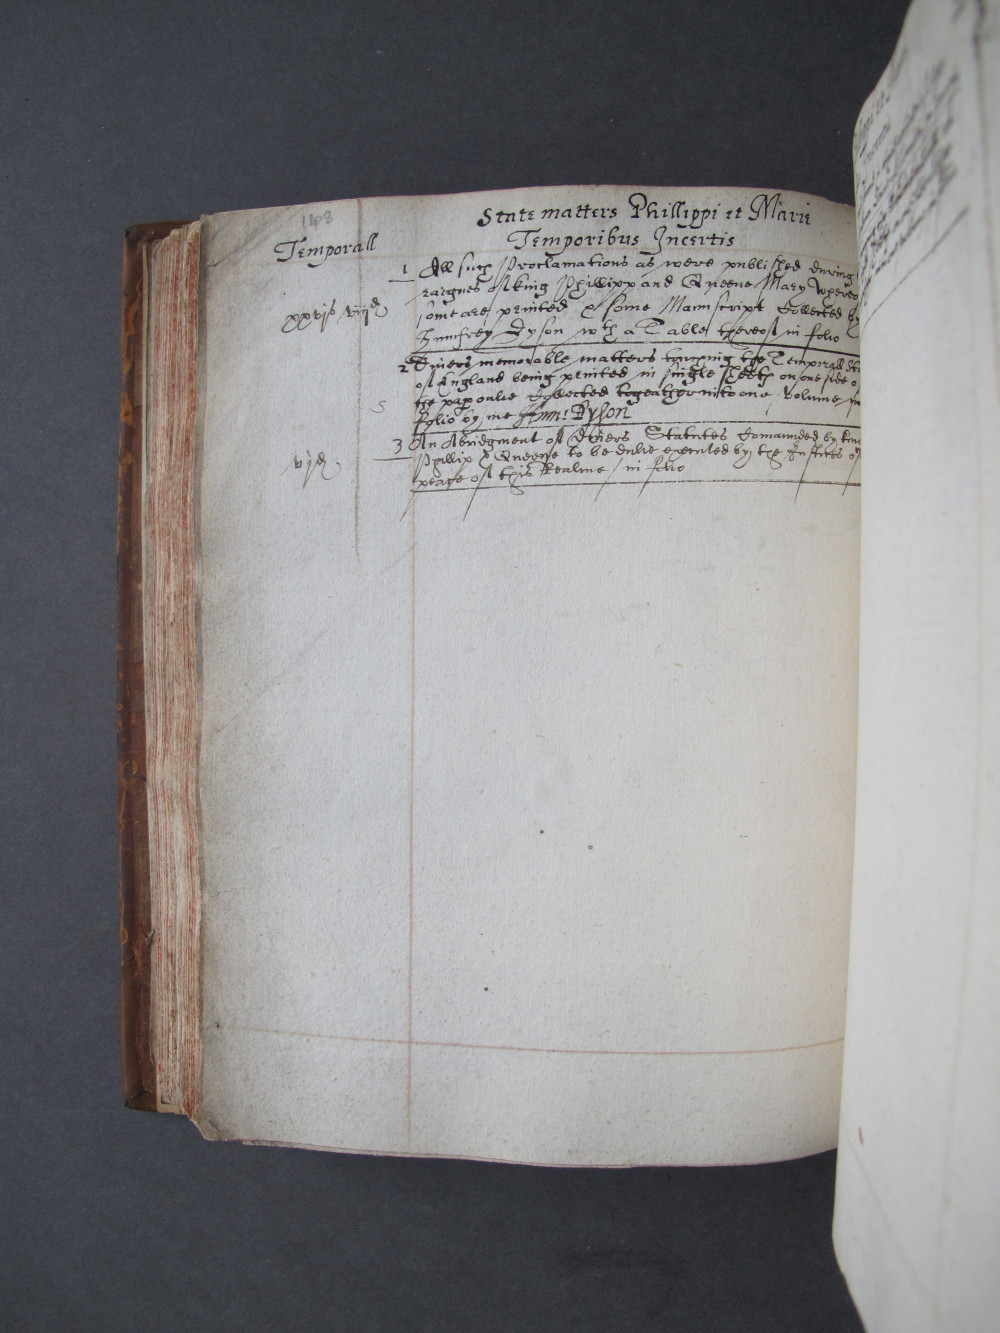 148
State matters Phillippi et Marie
Temporall
Temporibus Incertis
1 All such Proclamations as were published during
raignes of King Phillipp and Queene Mary whereo
xxvjs viijd
some are printed & some Manuscript Collected by
Humfrey Dyson wth a Table thereof in folio
2 Divers memorable matters touching the Temporall Sta
of England being printed in single sheets on one side o
the paper onlie Collected togeather into one Volume in
s
folio by me Hum: Dyson
3 An Abridgment of Divers Statutes Comaunded by King
Phillip & Queene to be dulie executed by the Justices of
vjd
peace of this Realme in folio